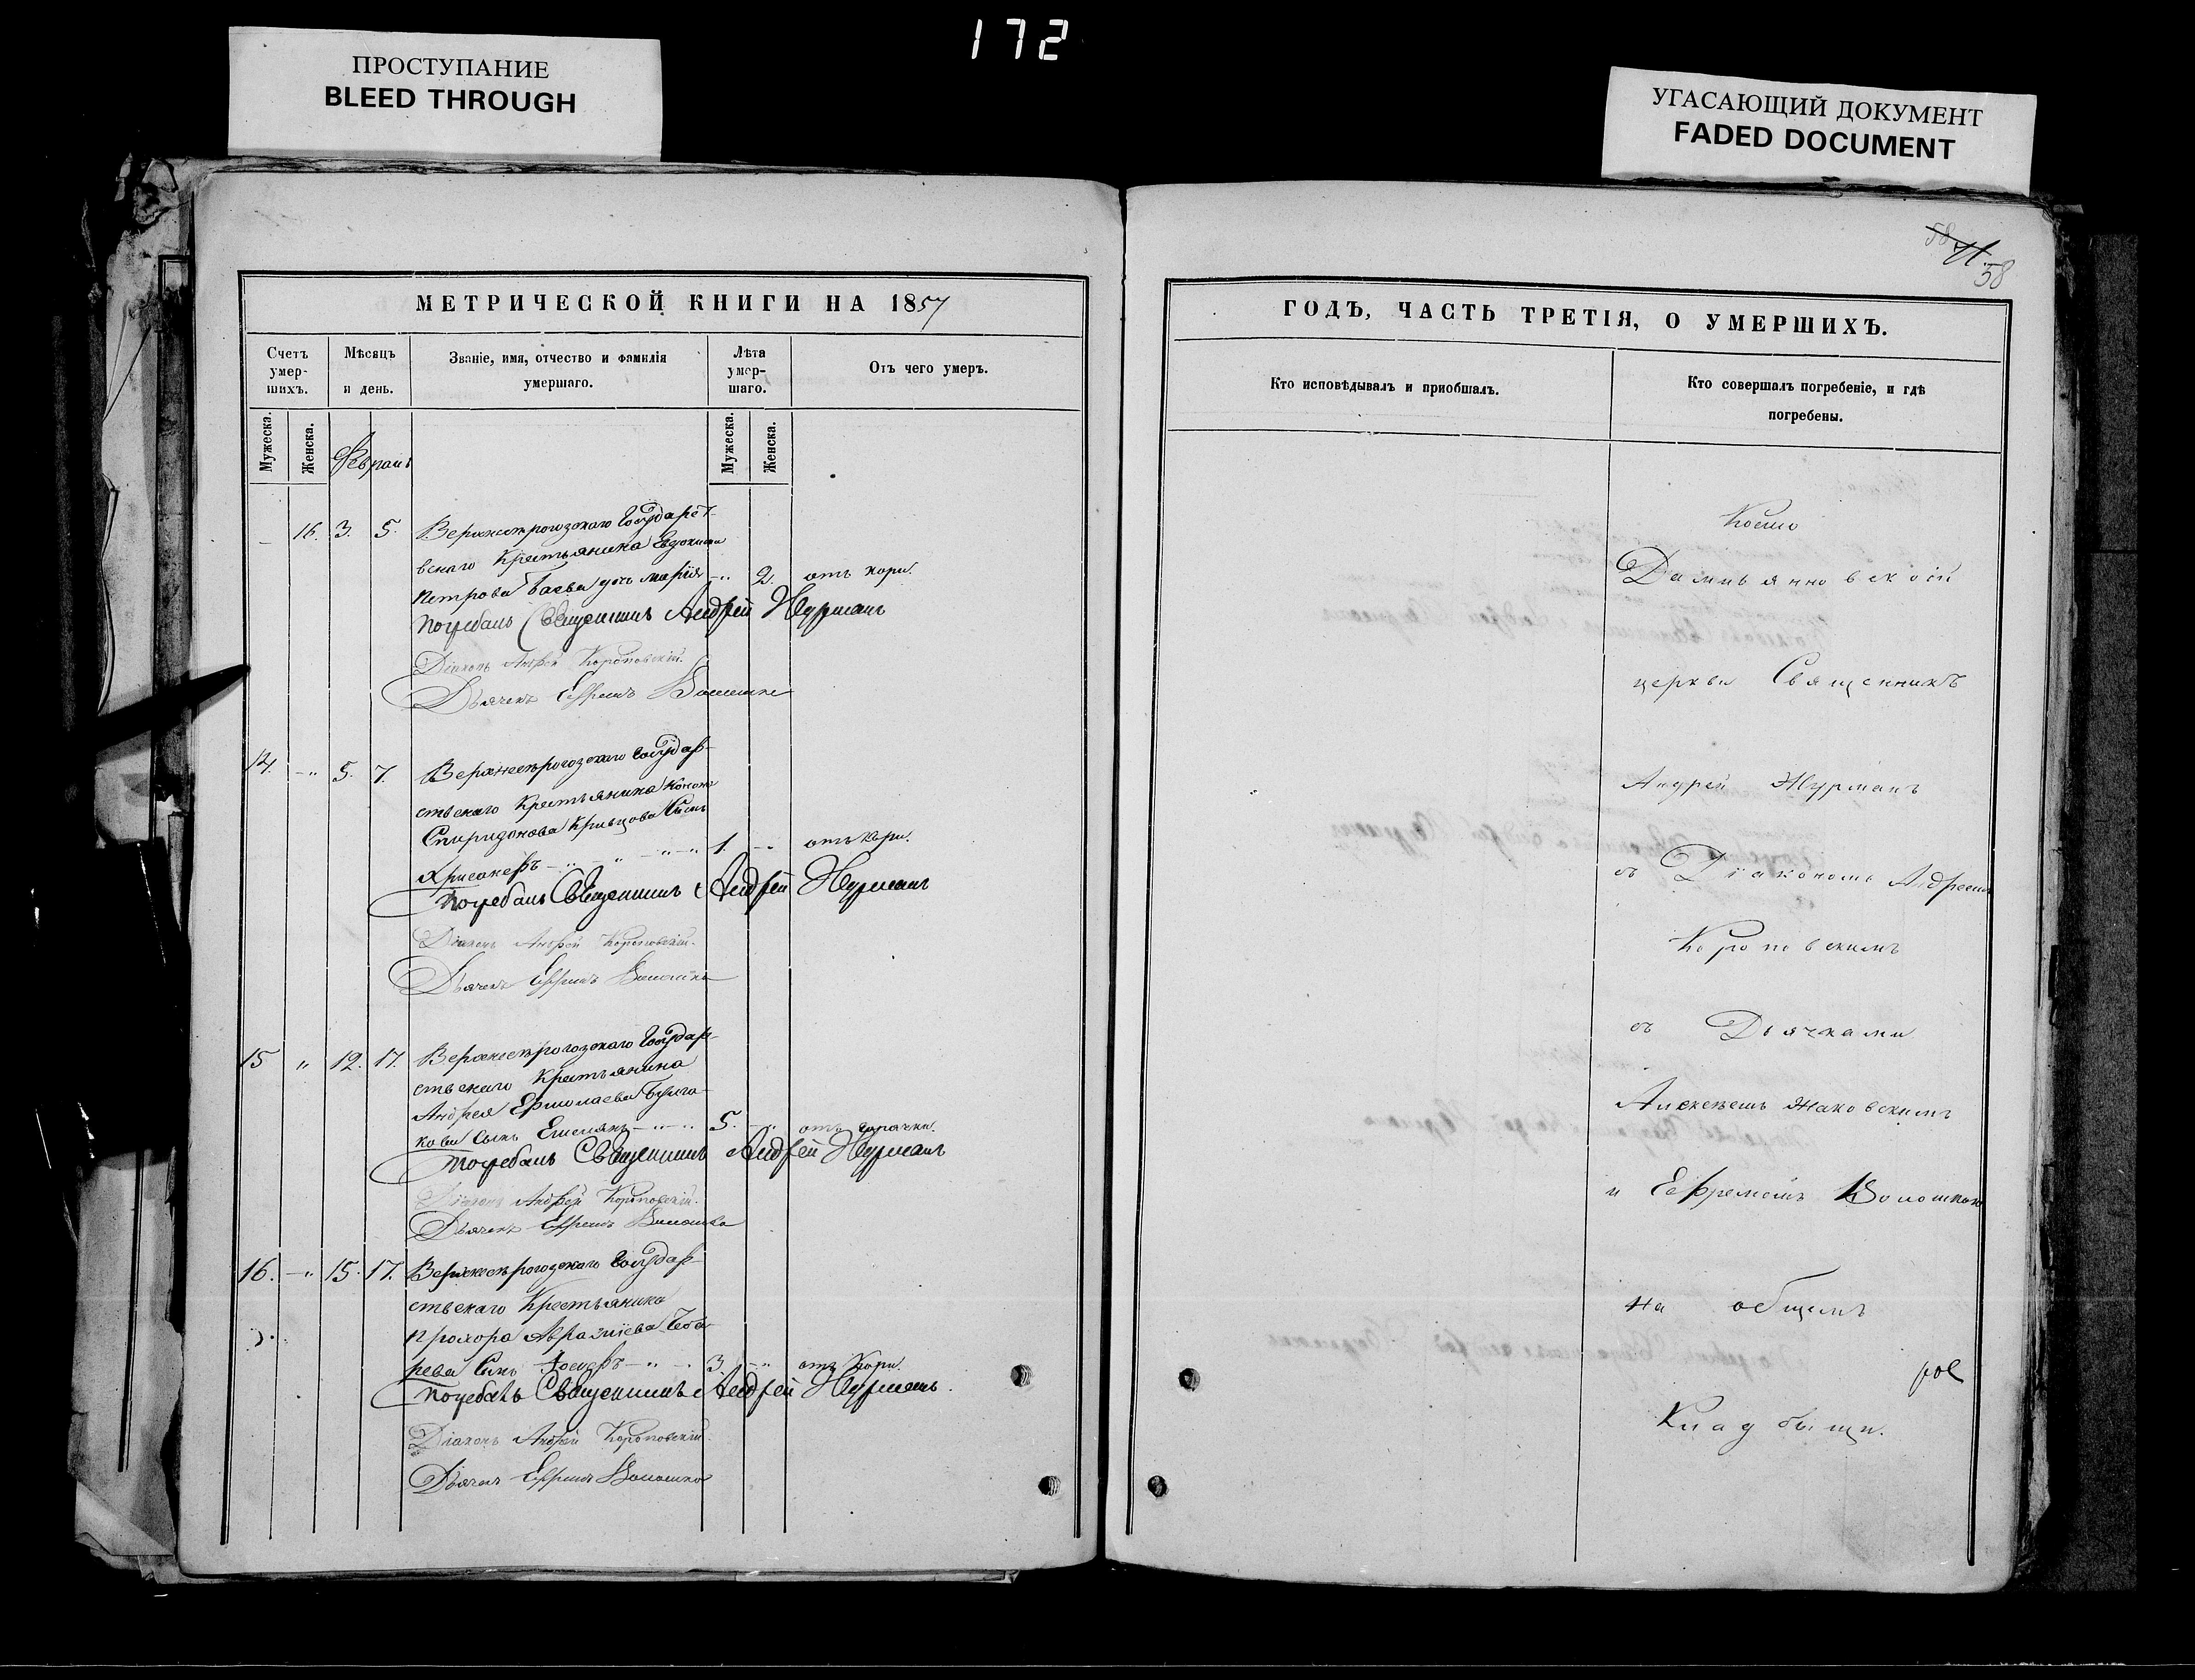 172
ПРОСТУПАНИЕ
BLEED THROUGH
УГАСАЮЩИЙ ДОКУМЕНТ
FADED DOCUMENT
58
МЕТРИЧЕСКОЙ КНИГИ НА 1857
Счетъ умер-шихъ.
Мѣсяцъ и день.
Званіе, имя, отчество и фамилія умершаго.
Лѣта умер-шаго.
Отъ чего умеръ.
Мужеска.
Женска.
Мужеска.
Женска.
Февраль
16. 3. 5. Верхнесѣрогозскаго Государст-
вскаго Крестьянина Евдокима
Петрова Баева дочь Марія 2. отъ кори.
Погребалъ Священникъ Андрей Журманъ
Діаконъ Андрей Короповскій.
Дьячекъ Ефремъ Волошко
14. 5. 7. Верхнесѣрогозскаго Государ-
ственаго Крестьянина Конона
Спиридонова Кривцова Сынъ
1. отъ кори.
Погребалъ Священникъ Андрей Журманъ
Діаконъ Андрей Короповскій.
Дьячекъ Ефремъ Волошко
15 12. 17. Верхнесѣрогозскаго Государ-
ственаго Крестьянина
Андрея Ермолаева Булга-
кова Сынъ Емельянъ 5. отъ горячки.
Погребалъ Священникъ Андрей Журманъ
Діаконъ Андрей Короповскій.
Дьячекъ Ефремъ Волошко
16. 15. 17. Верхнесѣрогозскаго Государ-
ственаго Крестьянина
Прохора Аврамїева
рева Сынъ 3. отъ Кори.
Погребалъ Священникъ Андрей Журманъ.
Діаконъ Андрей Короповскій.
Дьячекъ Ефремъ Волошко
ГОДЪ, ЧАСТЬ ТРЕТІЯ, О УМЕРШИХЪ.
Кто исповѣдывалъ и пріобщалъ.
Кто совершалъ погребеніе, и гдѣ погребены.
Космо
Даміьянновской
церкви Священникъ
Андрей Журманъ
съ Діакономъ Андреемъ
Короповскимъ
съ Дьячками
Алексѣемъ Жаковскимъ
и Ефремомъ Волошкою
на общемъ
Кладбищи.